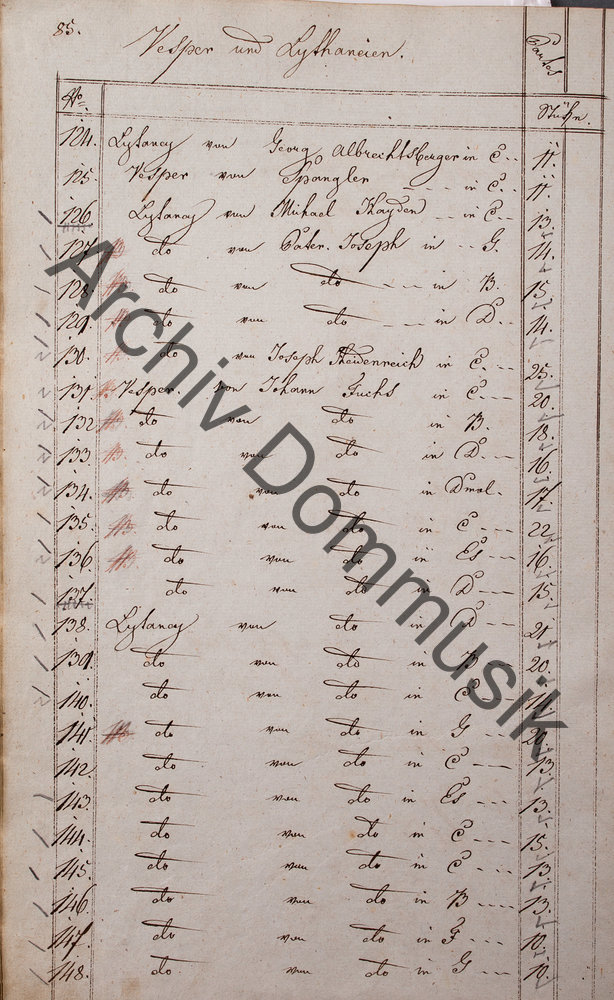 85.
Vesper und Lythaneien.
Partes
No
Stükn.
124. Lytaney von Georg Albrechtsberger in C.. 11.
125. Vesper von Spangler --- in C.. 11.
126 Lytaney von Michael Hayden -- in C-- 13.
127. do von Pater Joseph in -- G. 14.
128. do von do --- in B. 15.
129. do von do --- in D.. 14.
130. do von Joseph Heidenreich in C.-- 25.
131. Vesper. von Johann Fuchs in C--- 20.
132 do von do in B. 18.
133 do von do in D--- 16.
134. do von do in Dmol. 17.
135. do von do in C--- 22
136. do von do in Es--- 16.
137. do von do in D--- 15.
138. Lytaney von do in D--- 21.
139. do von do in B-- 20.
140. do von do in C-- 14.
141. do von do in G-- 20.
142. do von do in C--- 13.
143. do von do in Es--- 13.
144. do von do in C--- 15.
145. do von do in C--- 13.
146 do von do in B--- 13.
147. do von do in F--- 10.
148. do von do in G--- 10.
Archiv Dommusik